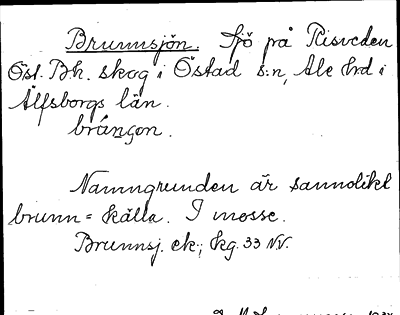 Brunnsjön. Sjö på Risveden
Öst. Bh. skog i Östad s:n, Ale hrd i
Älfsborgs län.
brúnʃon.
Namngrunden är sannolikt
brunn = källa. I mosse.
Brunnsj. ek.; Kg. 33 NV.